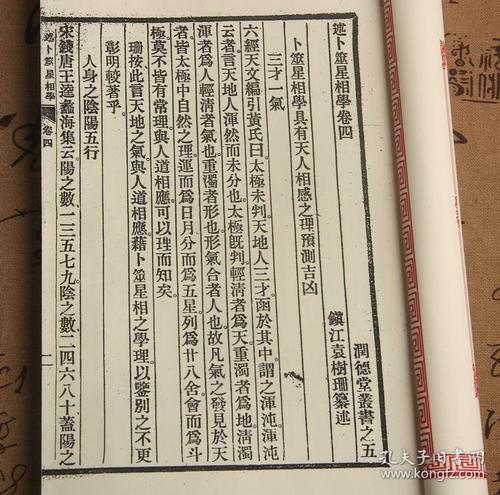 潤德堂叢書之五
述卜筮星相學卷四
鎭江袁樹珊纂述
卜筮星相學具有天人相感之理預測吉凶
三才一氣
六經天文編引黃氏曰太極未判天地人三才函於其中謂之渾沌渾沌
云者言天地人渾然而未分也太極旣判輕清者爲天重濁者爲地清濁
渾者爲人輕清者氣也重濁者形也形氣合者人也故凡氣之發見於天
者皆太極中自然之理運而爲日月分而爲五星列爲廿八舍會而爲斗
極莫不皆有常理與人道相應可以理而知矣
珊按此言天地之氣與人道相應藉卜筮星相之學理以鑒別之不更
彰明較著乎
人身之陰陽五行
宋錢唐王逵蠡海集云陽之數一三五七九陰之數二四六八十蓋陽之
述卜筮星相學
卷四
一
孔夫子旧书网